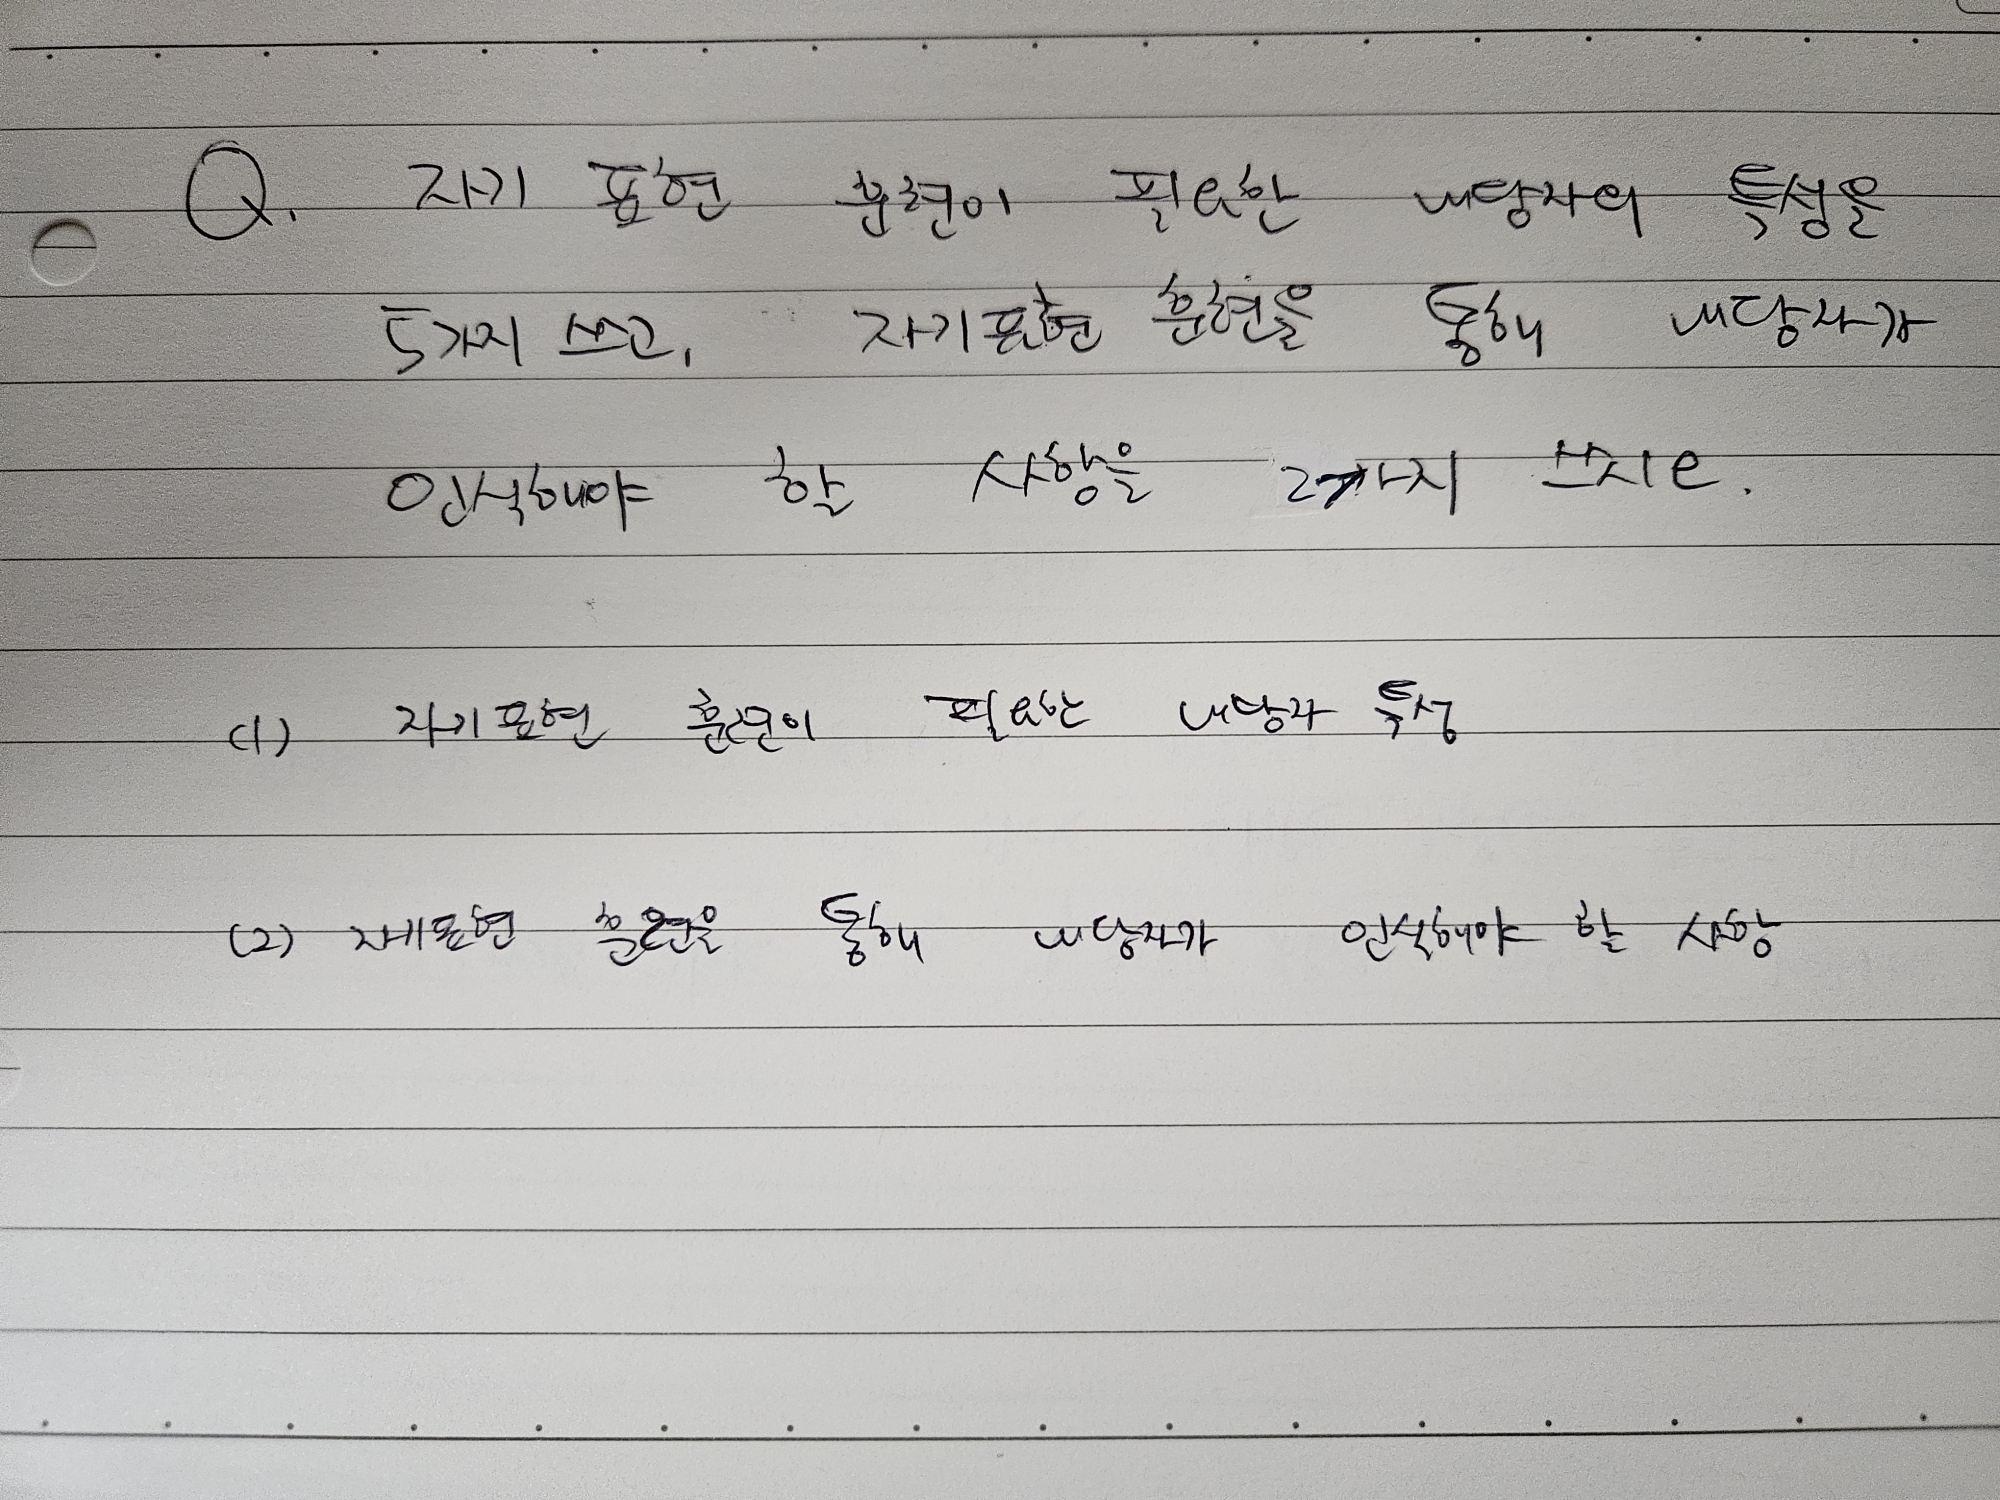 Q. 자기 표현 훈련이 필요한 내담자의 특성을
5가지 쓰고, 자기표현 훈련을 통해 내담자가
인식해야 할 사항을 2가지 쓰시오.
(1) 자기표현 훈련이 필요한 내담자 특성
(2) 자기표현 훈련을 통해 내담자가 인식해야 할 사항